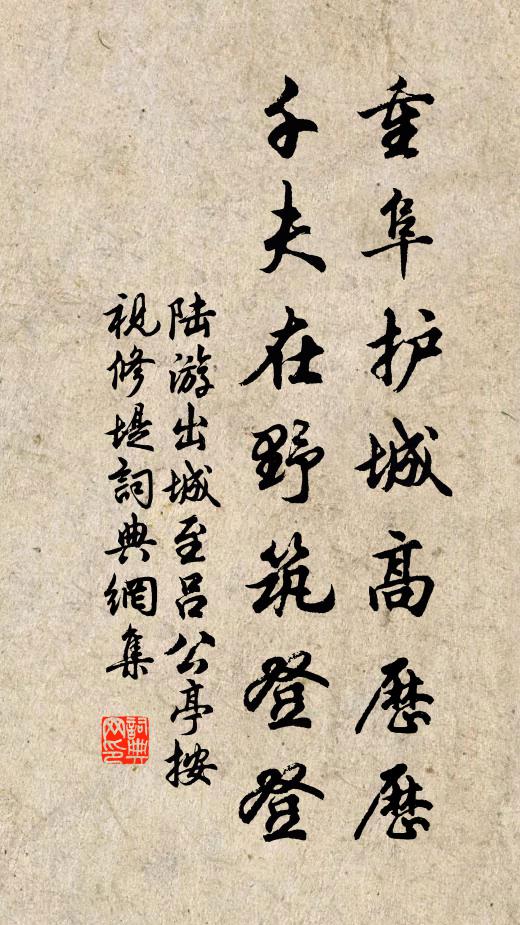 重阜护城高歷歷
千夫在野筑登登
陆游出城至吕公亭按
視修堤詞典網集
詞典
网印